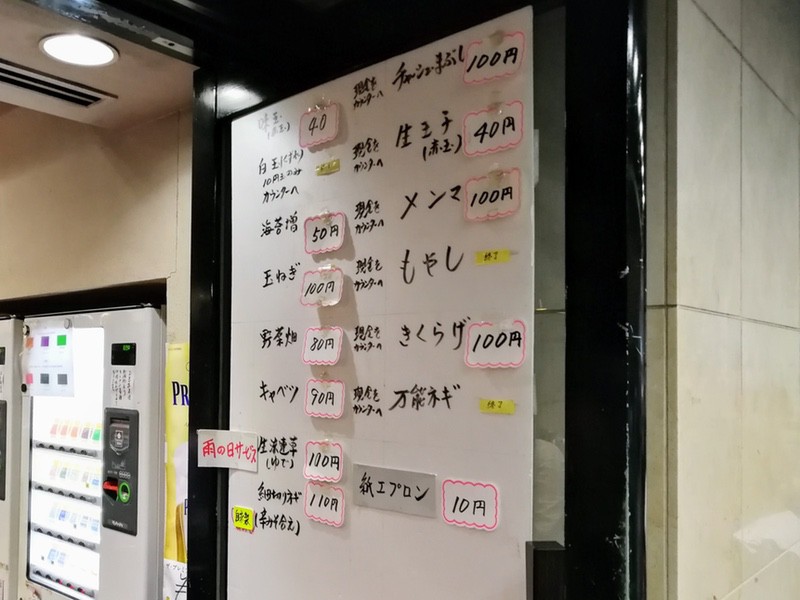 味玉
(赤玉)
40
白玉(くずれ)
10円玉のみ
カウンターへ
海苔増
50円
玉ねぎ
100円
野菜畑
80円
キャベツ
90円
雨の日サービス
生法連草
(ゆで)
100円
細切りネギ
(辛みそ合え)
110円
現金を
カウンターへ
チャーシューまぶし
100円
現金を
カウンターへ
生玉子
(赤玉)
40円
現金を
カウンターへ
メンマ
100円
現金を
カウンターへ
もやし
終了
現金を
カウンターへ
きくらげ
100円
現金を
カウンターへ
万能ネギ
終了
紙エプロン
10円
PR